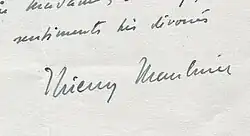 madame,
sentiments très dévoués
Thierry Maulnier